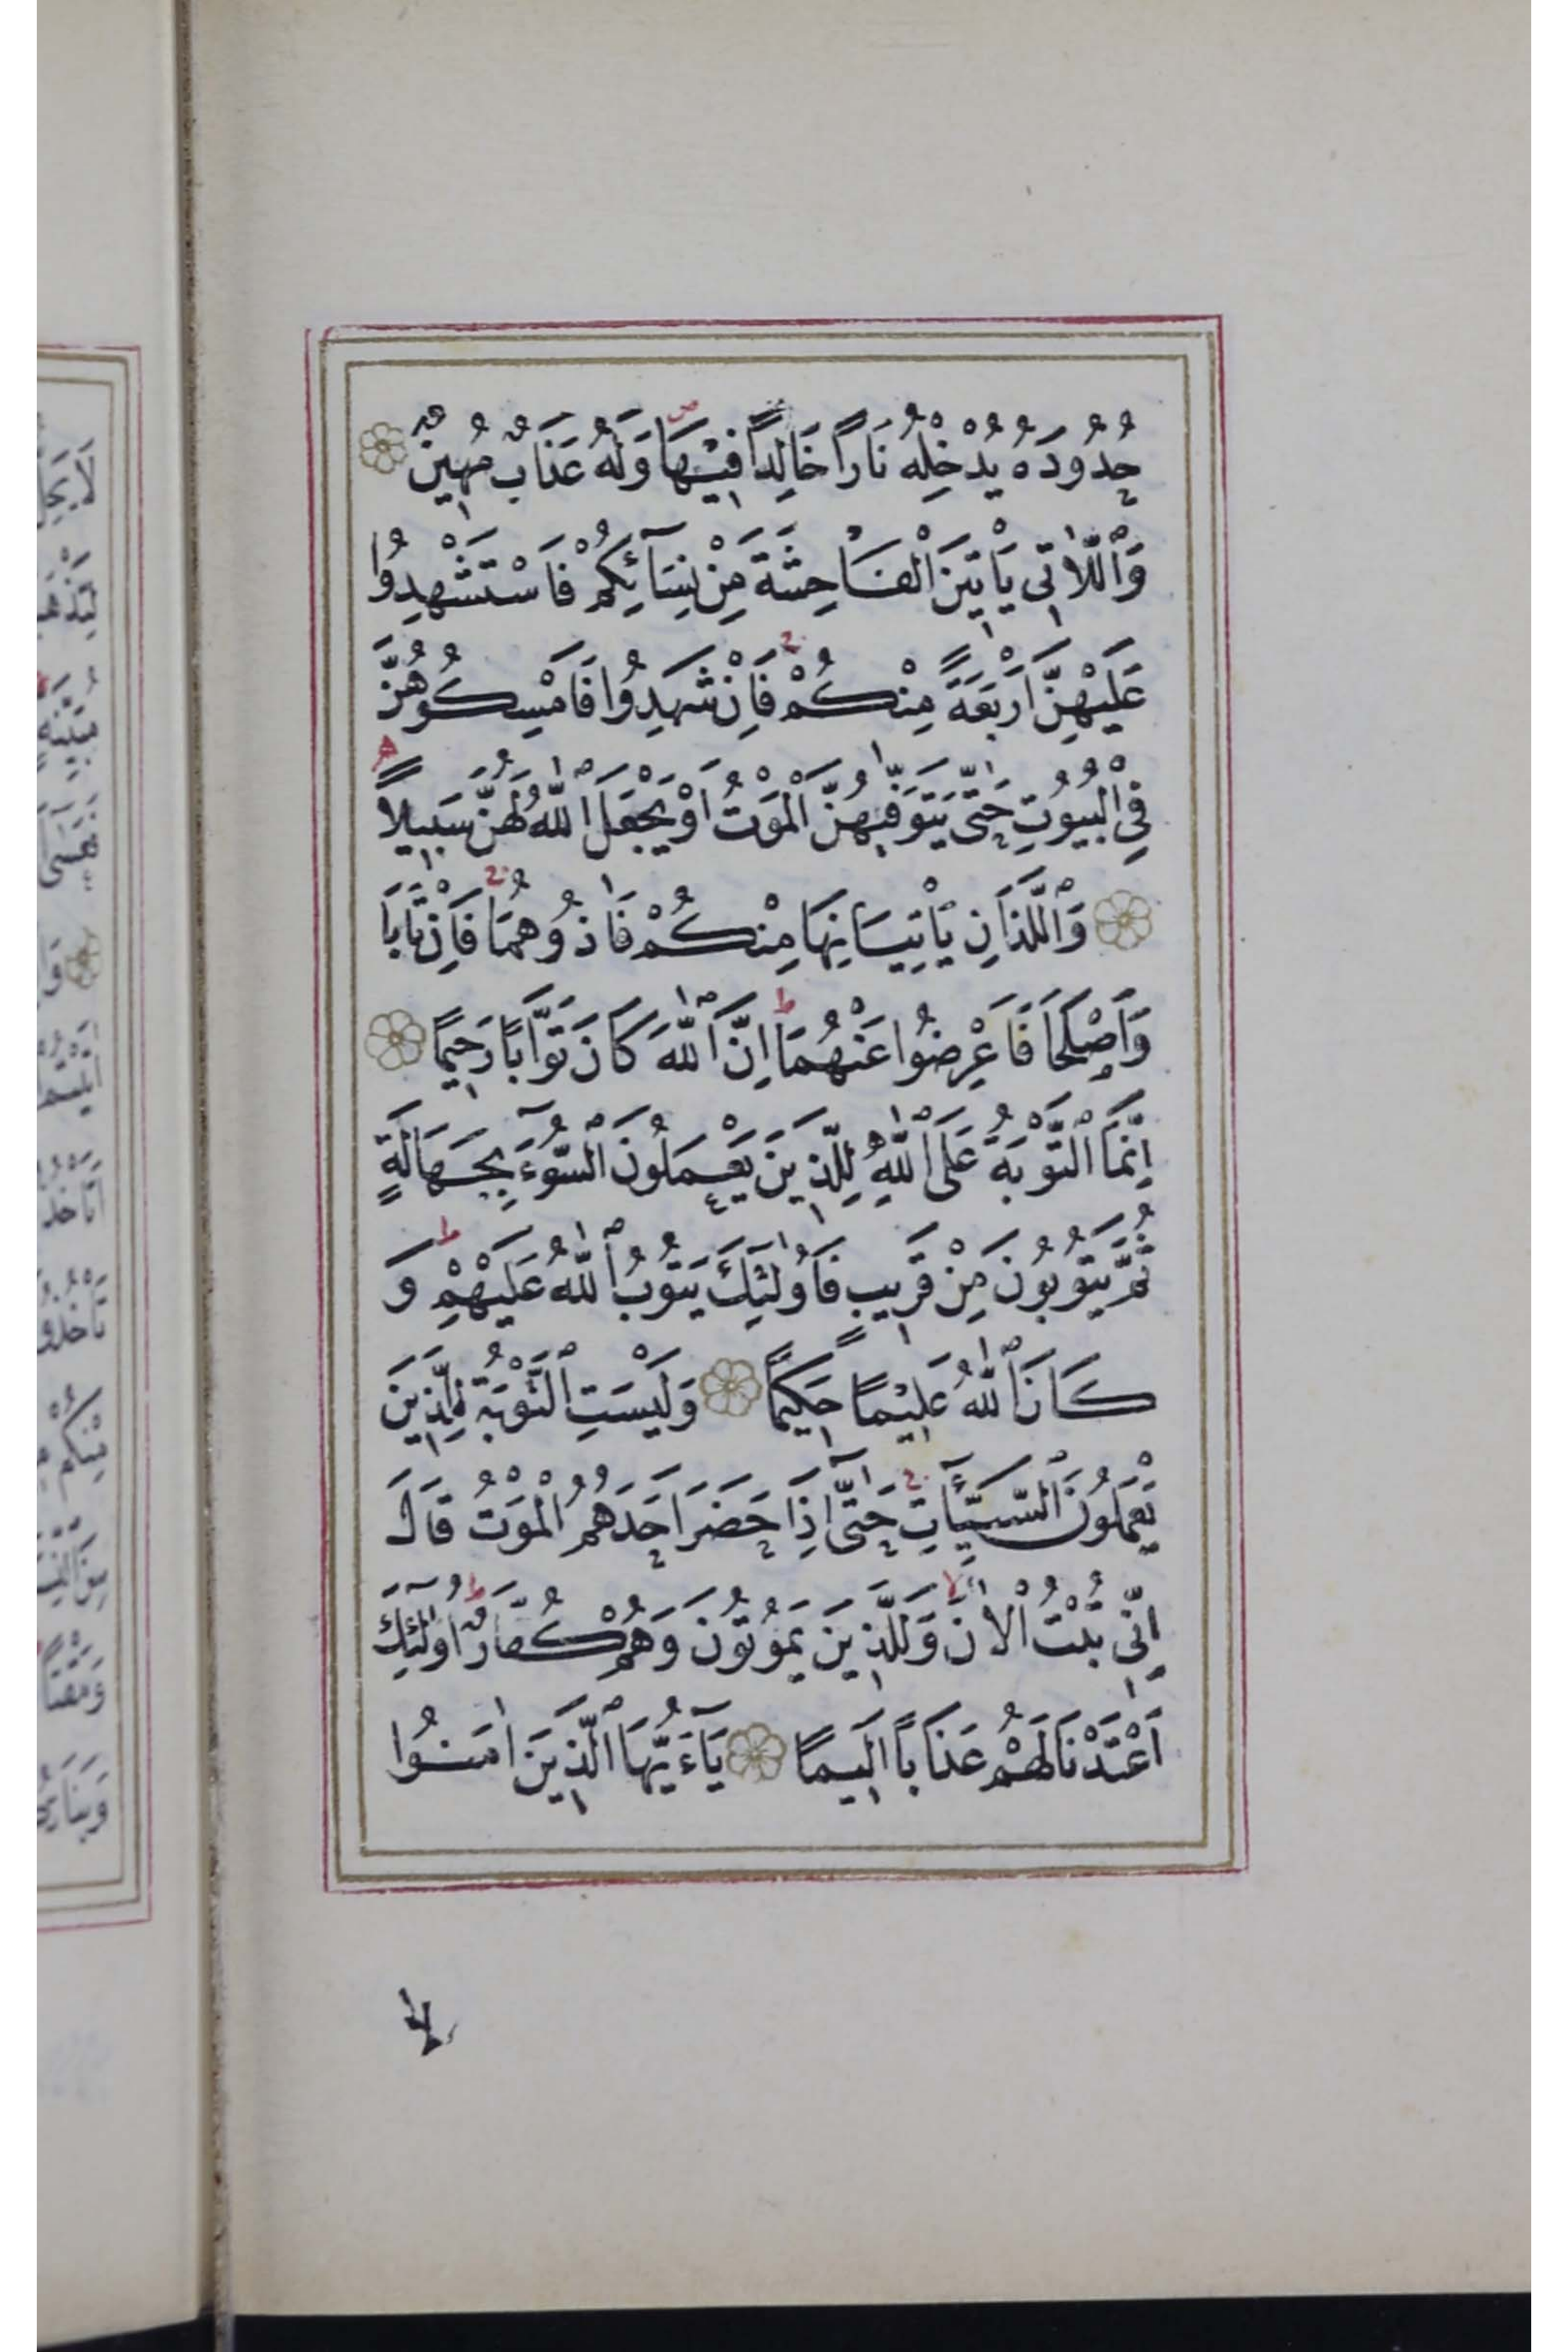 حُدُودَهُ يُدْخِلْهُ نَارًا خَالِدًا فِيهَا وَلَهُ عَذَابٌ مُهِينٌ
وَٱللَّاتِي يَأْتِينَ ٱلْفَاحِشَةَ مِنْ نِسَآئِكُمْ فَاسْتَشْهِدُوا
عَلَيْهِنَّ اَرْبَعَةً مِنْكُمْ فَاِنْ شَهِدُوا فَاَمْسِكُوهُنَّ
فِي الْبُيُوتِ حَتّٰى يَتَوَفّٰيهُنَّ الْمَوْتُ اَوْ يَجْعَلَ ٱللّٰهُ لَهُنَّ سَبِيلًا
وَٱللَّذَانِ يَأْتِيَانِهَا مِنْكُمْ فَاٰذُوهُمَا فَاِنْ تَابَا
وَاَصْلَحَا فَاَعْرِضُوا عَنْهُمَا اِنَّ ٱللّٰهَ كَانَ تَوَّابًا رَحِيمًا
اِنَّمَا ٱلتَّوْبَةُ عَلَى ٱللّٰهِ لِلَّذِينَ يَعْمَلُونَ ٱلسُّوٓءَ بِجَهَالَةٍ
ثُمَّ يَتُوبُونَ مِنْ قَرِيبٍ فَاُولٰٓئِكَ يَتُوبُ ٱللّٰهُ عَلَيْهِمْ وَ
كَانَ ٱللّٰهُ عَلِيمًا حَكِيمًا وَلَيْسَتِ ٱلتَّوْبَةُ لِلَّذِينَ
يَعْمَلُونَ ٱلسَّيِّـَٔاتِ حَتّٰىٓ اِذَا حَضَرَ اَحَدَهُمُ الْمَوْتُ قَالَ
اِنِّي تُبْتُ الْاٰنَ وَلَا ٱلَّذِينَ يَمُوتُونَ وَهُمْ كُفَّارٌ اُولٰٓئِكَ
اَعْتَدْنَا لَهُمْ عَذَابًا اَلِيمًا يَآءَيُّهَا ٱلَّذِينَ اٰمَنُوا